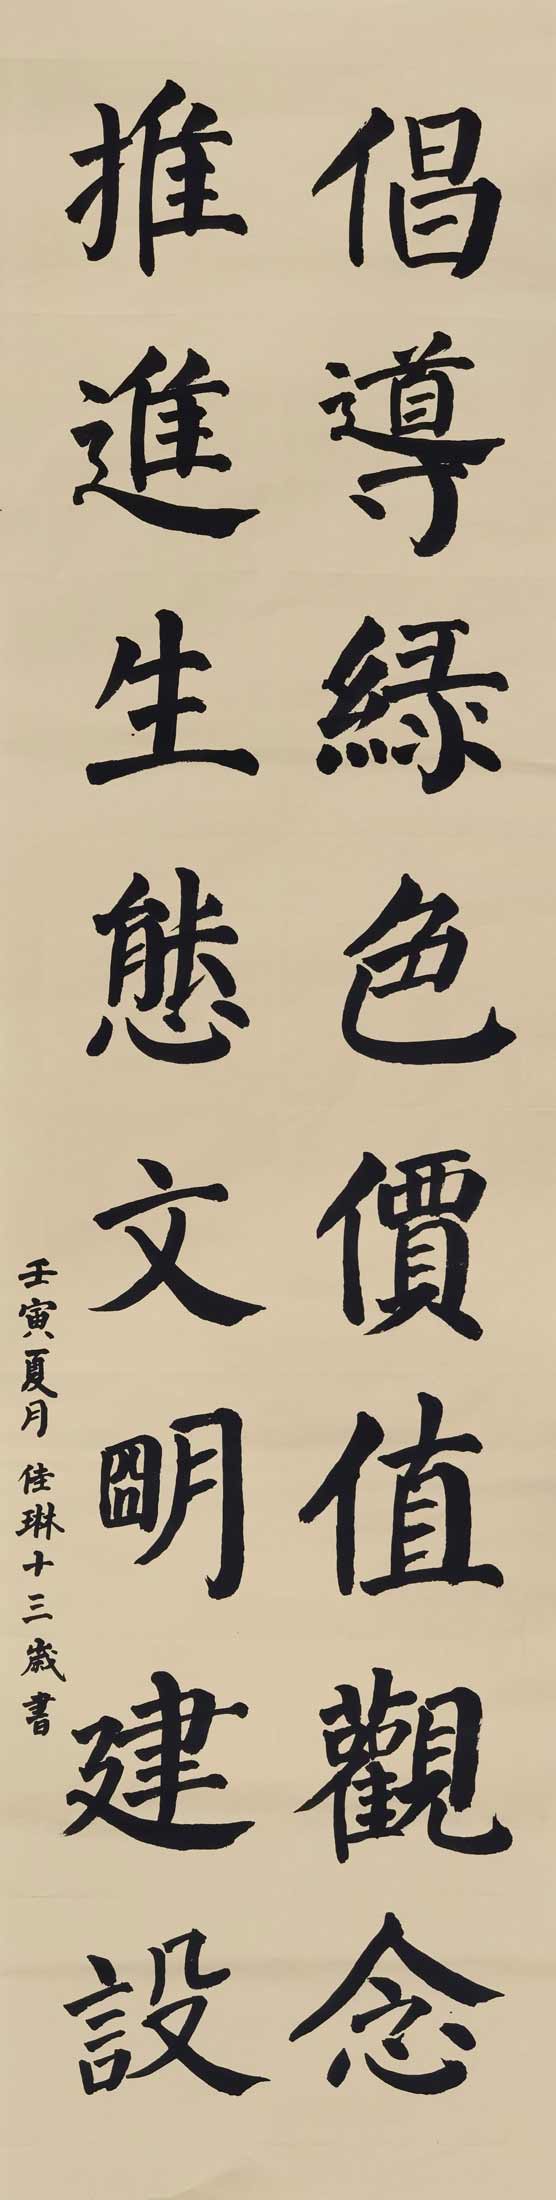 倡導綠色價值觀念
推進生態文明建設
壬寅夏月 佳琳十三歲書